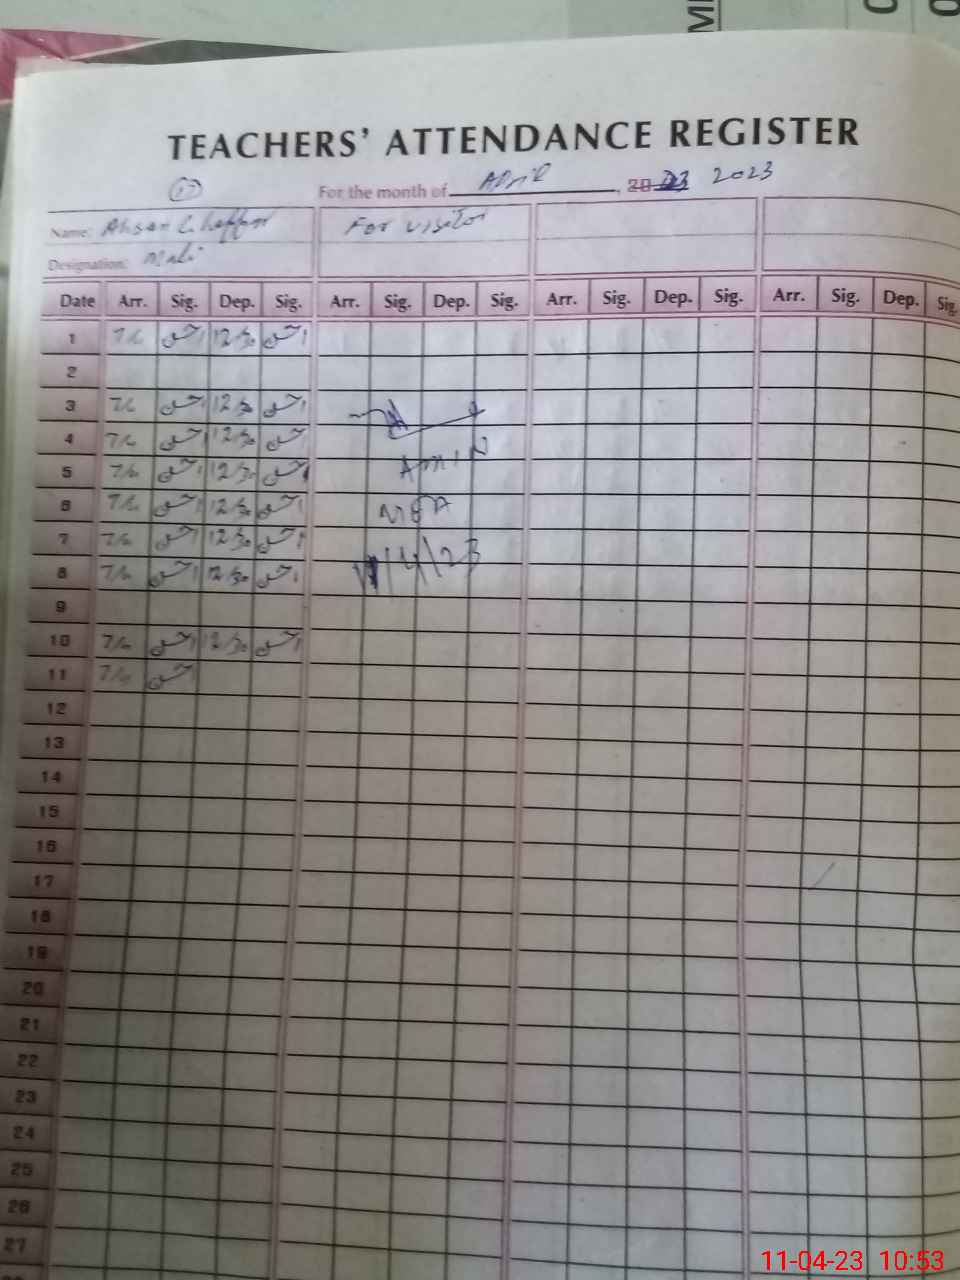 TEACHERS' ATTENDANCE REGISTER
For the month of April, 20 2023
Name: Ahsan
For visitor
Designation: Mali
Date Arr. Sig. Dep. Sig. Arr. Sig. Dep. Sig. Arr. Sig. Dep. Sig. Arr. Sig. Dep. Sig.
1 احسن 12/30 احسن
2
3 احسن 12/30 احسن
4 احسن 12/30 احسن
5 احسن 12/30 احسن
6 احسن 12/30 احسن
7 احسن 12/30 احسن
8 احسن 12/30 احسن
9
10 احسن 12/30 احسن
11 احسن
12
13
14
15
16
17
18
19
20
21
22
23
24
25
26
27
11/4/23
11-04-23 10:53